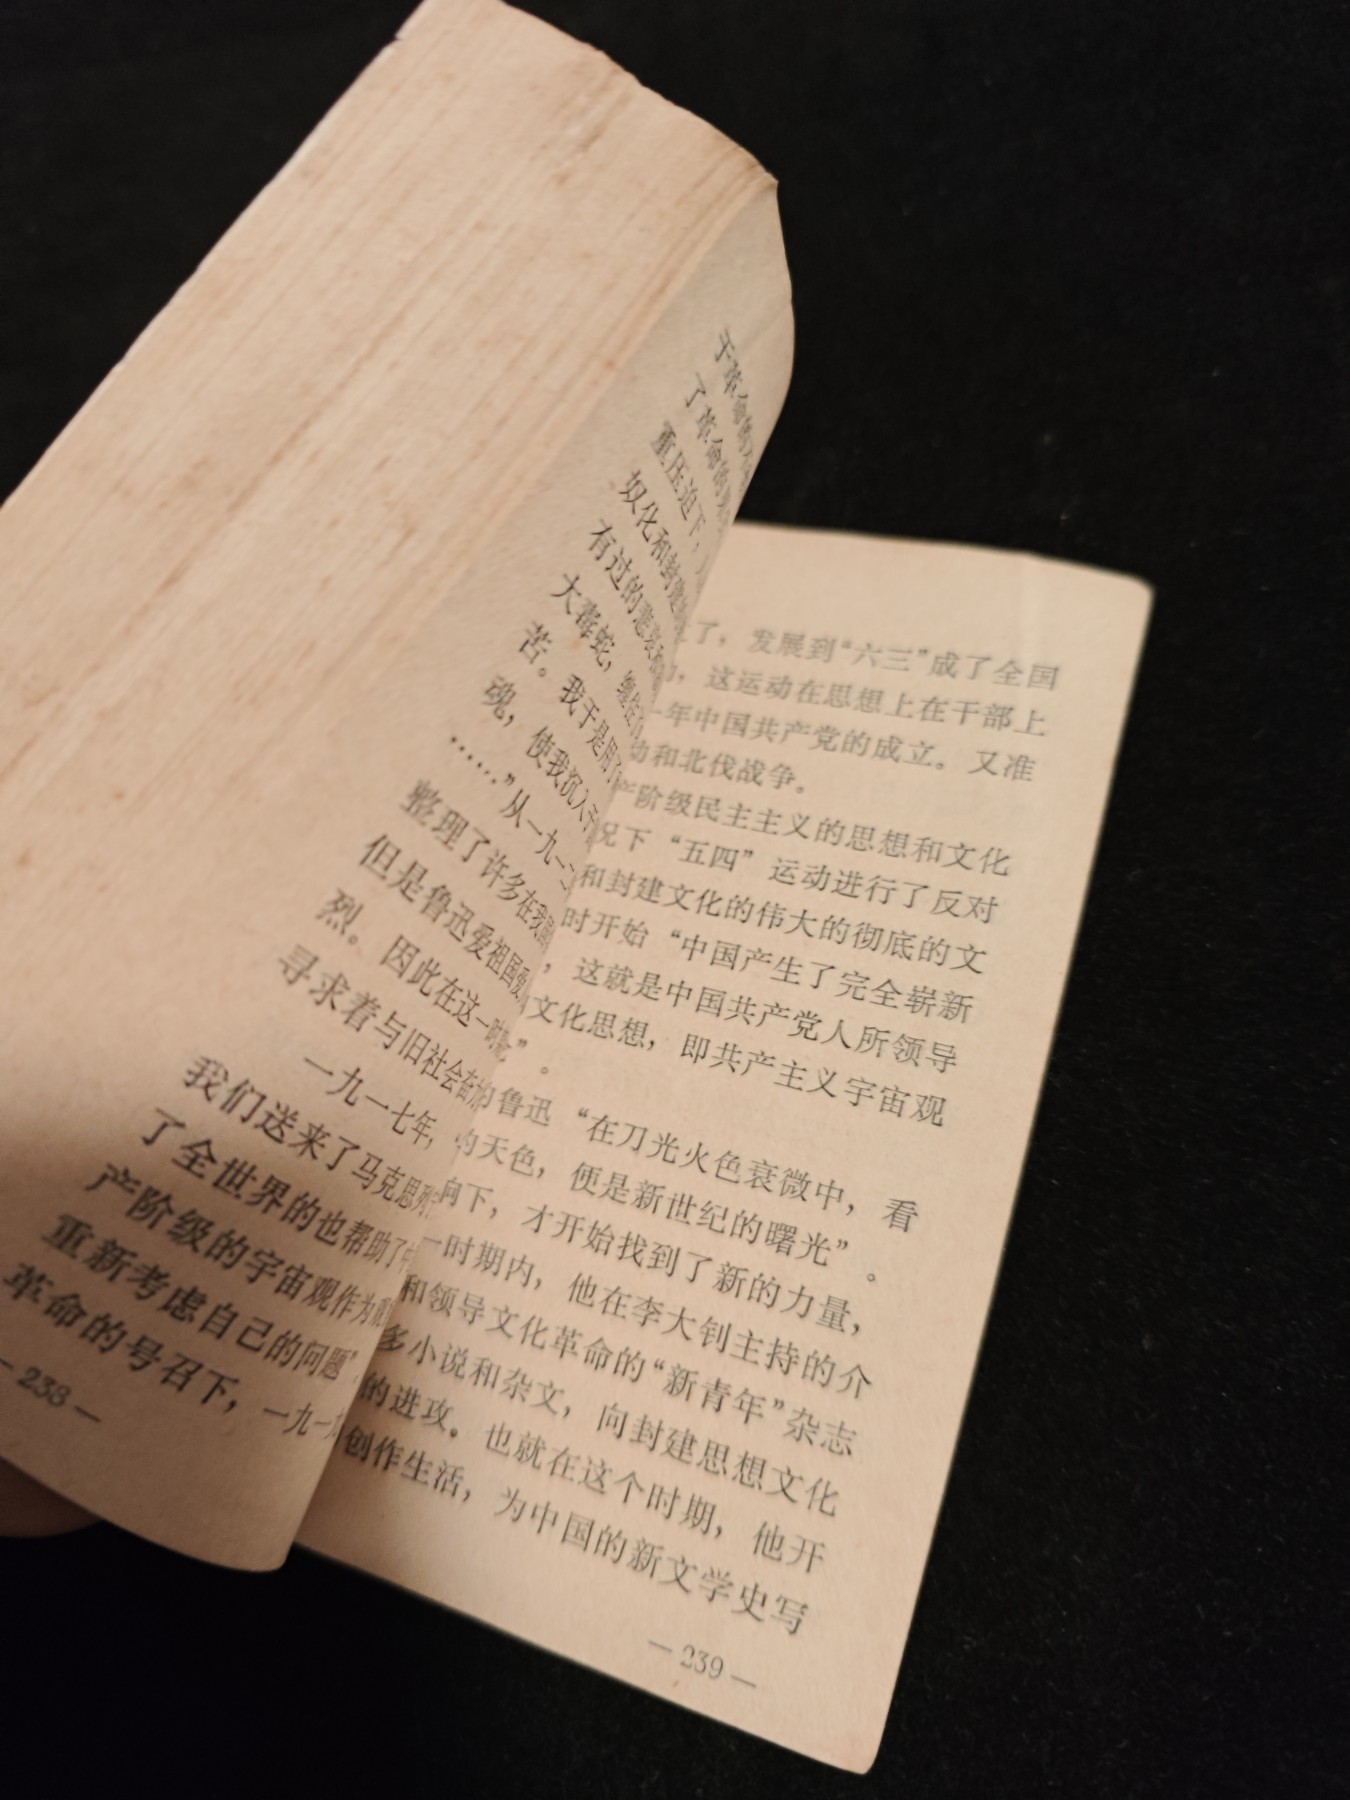 于革命的
了革命的
重压迫下，
奴化和封建
有过的悲哀
大毒蛇，缠住
苦。我于是用
魂，使我沉入
……”从一九一
整理了许多在我
但是鲁迅爱祖国
烈。因此在这一时
寻求着与旧社会奋
一九一七年，
我们送来了马克思列
了全世界的也帮助了中
产阶级的宇宙观作为
重新考虑自己的问题”
革命的号召下，一九一
— 238 —
了，发展到“六三”成了全国
，这运动在思想上在干部上
一年中国共产党的成立。又准
动和北伐战争。
产阶级民主主义的思想和文化
况下“五四”运动进行了反对
和封建文化的伟大的彻底的文
时开始“中国产生了完全崭新
，这就是中国共产党人所领导
文化思想，即共产主义宇宙观
”。
鲁迅“在刀光火色衰微中，看
的天色，便是新世纪的曙光”。
向下，才开始找到了新的力量，
一时期内，他在李大钊主持的介
和领导文化革命的“新青年”杂志
多小说和杂文，向封建思想文化
的进攻。也就在这个时期，他开
创作生活，为中国的新文学史写
— 239 —